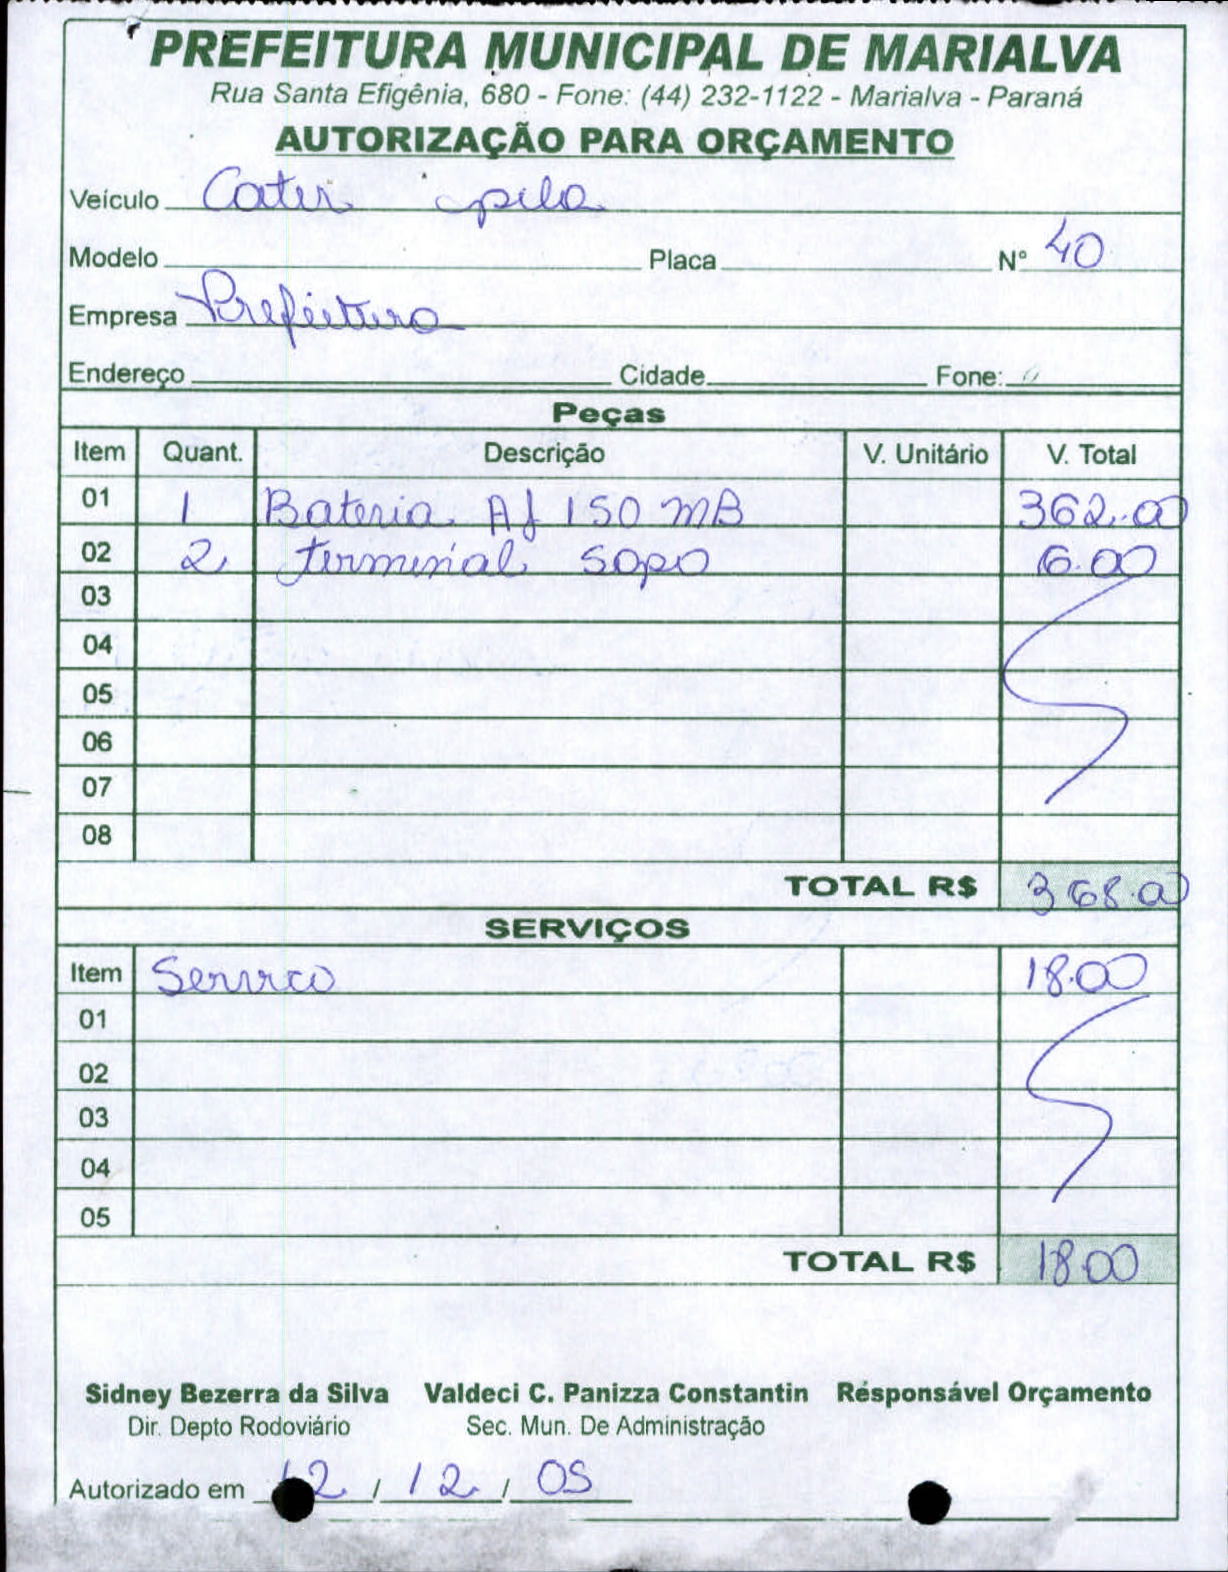 PREFEITURA MUNICIPAL DE MARIALVA
Rua Santa Efigênia, 680 - Fone: (44) 232-1122 - Marialva - Paraná
AUTORIZAÇÃO PARA ORÇAMENTO
Veículo Cater pila
Modelo Placa Nº 40
Empresa Prefeitura
Endereço Cidade Fone:
Peças
Item Quant. Descrição V. Unitário V. Total
01 1 Bateria AJ 150 MB 362.00
02 2 terminal sapo 6.00
03
04
05
06
07
08
TOTAL R$ 368.00
SERVIÇOS
Item Servico 18.00
01
02
03
04
05
TOTAL R$ 18.00
Sidney Bezerra da Silva Valdeci C. Panizza Constantin Responsável Orçamento
Dir. Depto Rodoviário Sec. Mun. De Administração
Autorizado em 12 / 12 / 05